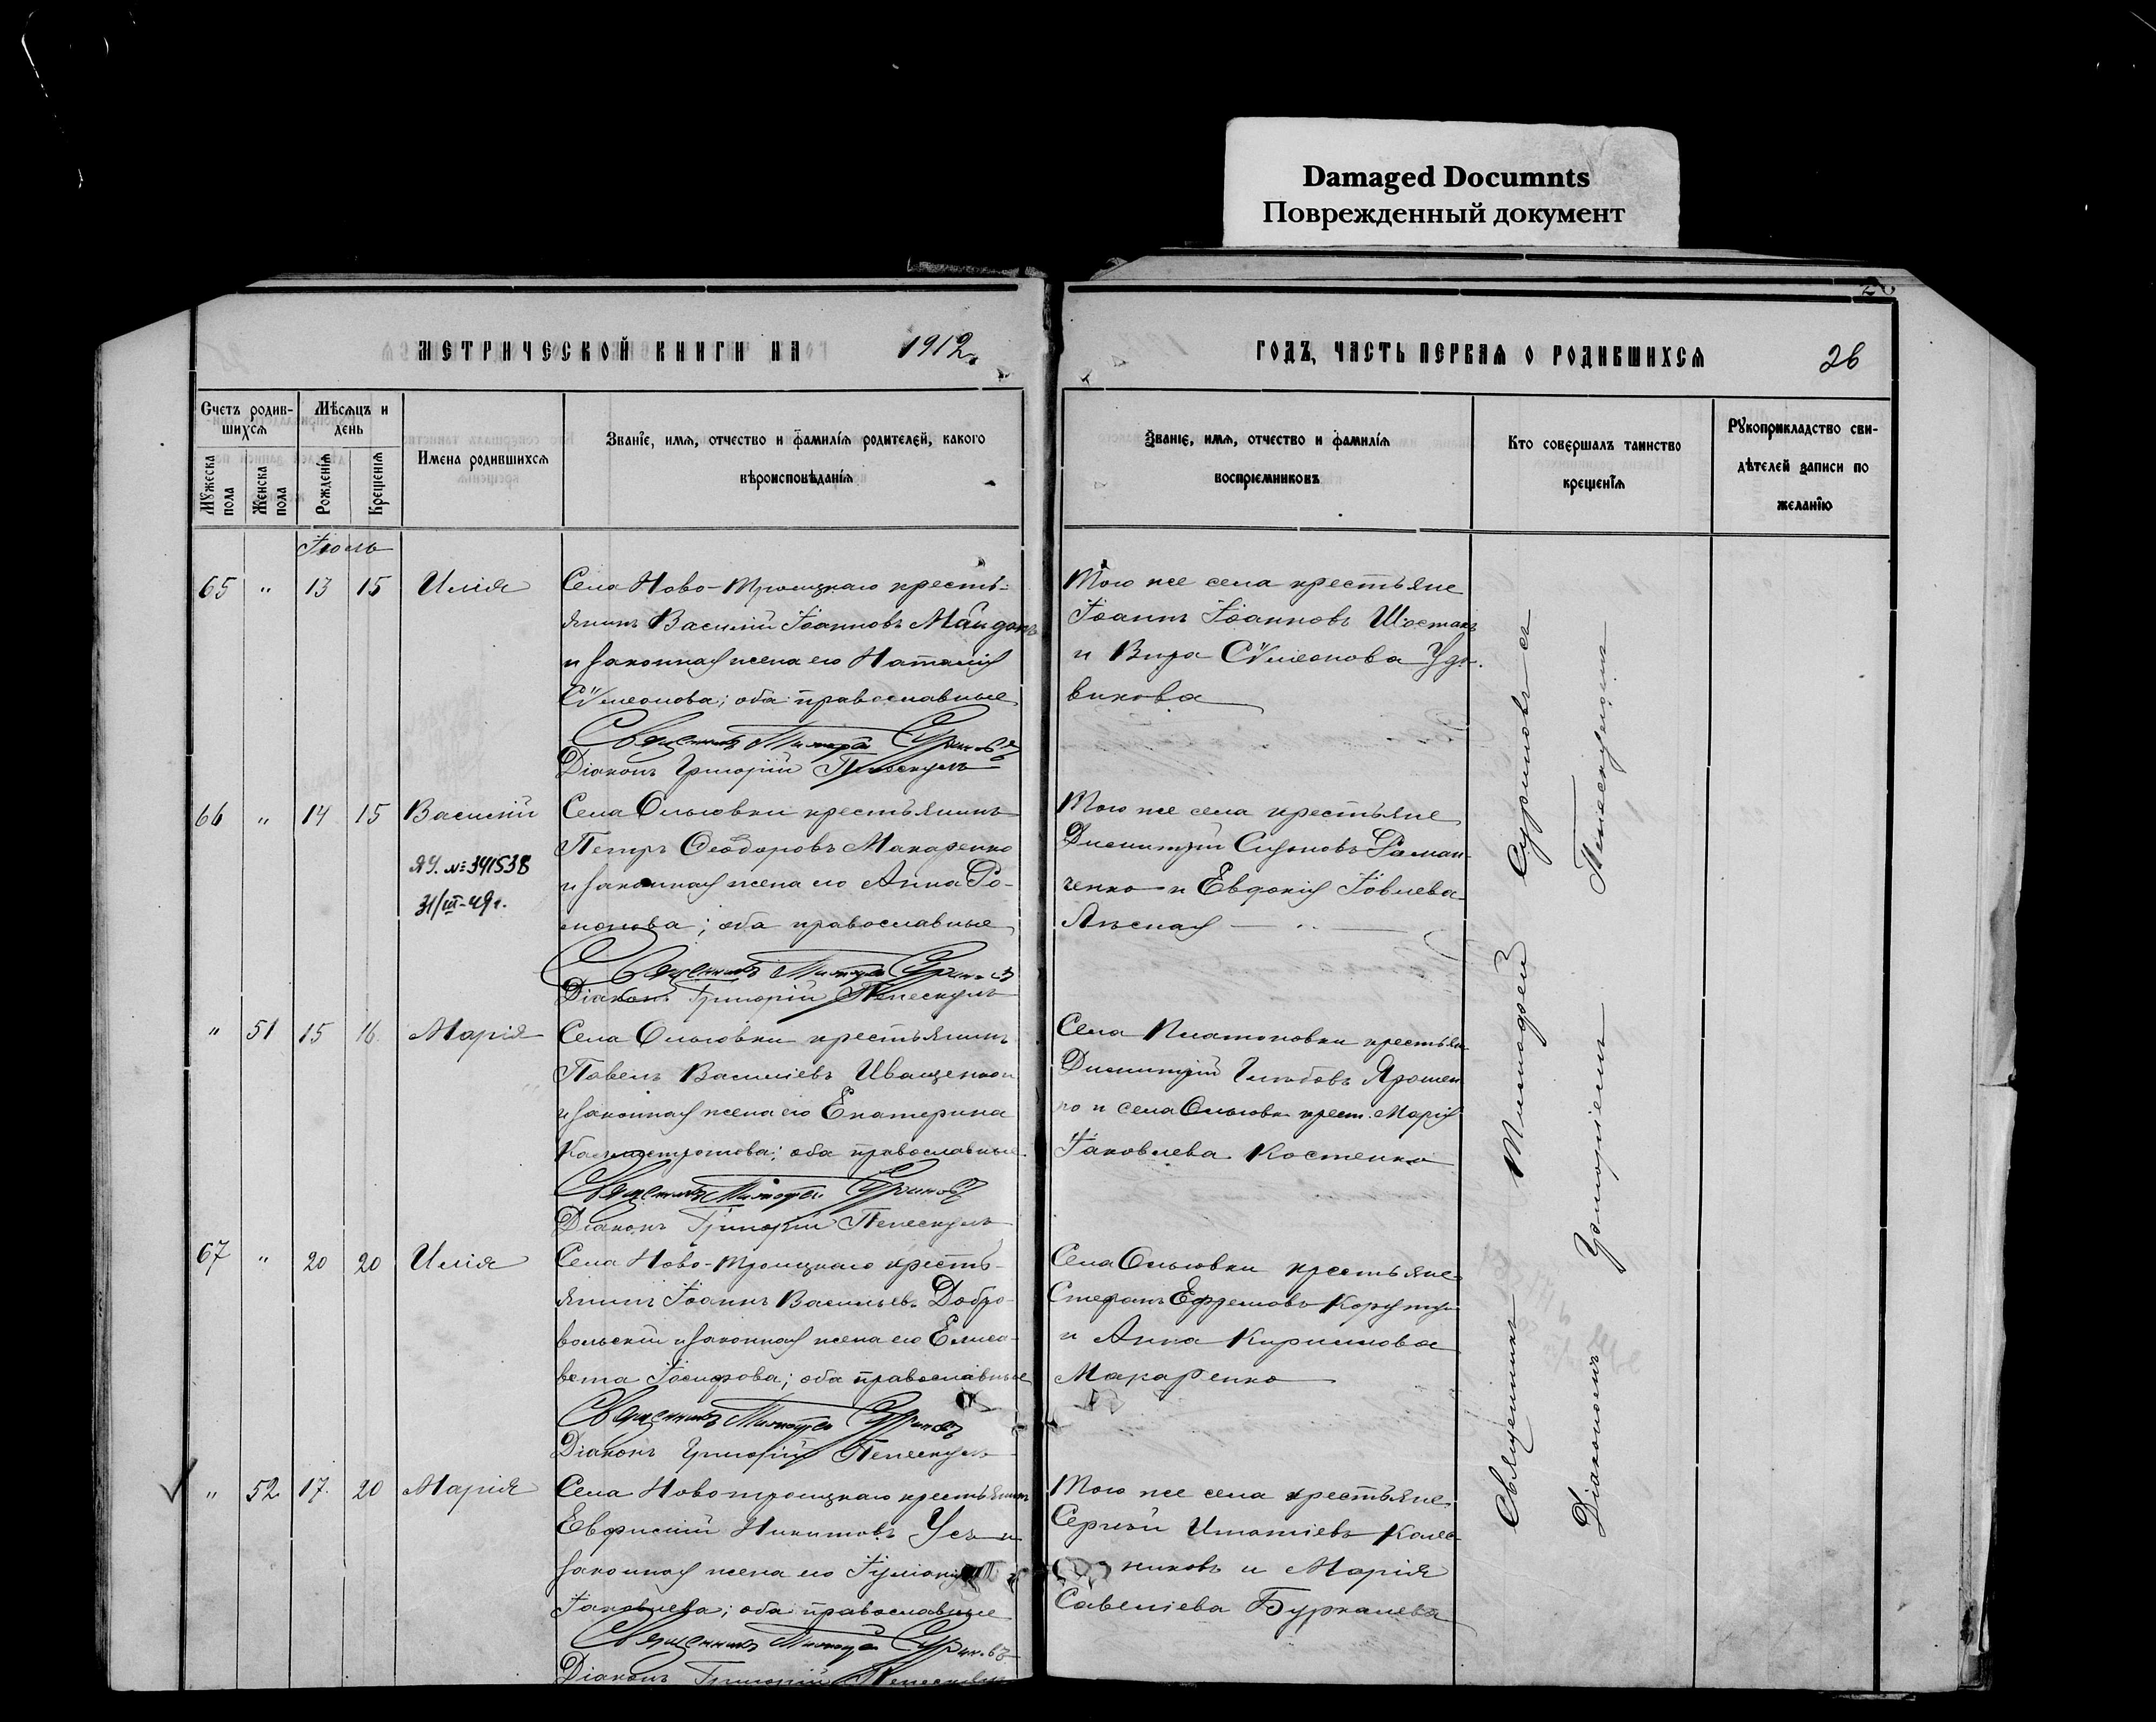 Damaged Documnts
Поврежденный документ
МЕТРИЧЕСКОЙ КНИГИ НА 1912 г.
ГОДЪ, ЧАСТЬ ПЕРВАЯ О РОДИВШИХСЯ 26
Счетъ родив-
шихся
Мѣсяцъ и
день
Мужеска
пола
Женска
пола
Рожденія
Крещенія
Имена родившихся
Званіе, имя, отчество и фамилія родителей, какого
вѣроисповѣданія
Званіе, имя, отчество и фамилія
воспріемниковъ
Кто совершалъ таинство
крещенія
Рукоприкладство сви-
дѣтелей записи по
желанію
Іюль
65 " 13 15 Илія
Села Ново-Троицкаго кресть-
янинъ Василій Іоанновъ Майданъ
и законная жена его Наталія
Сѵмеонова; оба православные
Священникъ Тимофей Суриновъ
Діаконъ Григорій Пелескулъ
Того же села крестьяне
Іоаннъ Іоанновъ Шостакъ
и Вира Сѵмеонова Удо-
викова
66 " 14 15 Василій
ЯУ. № 341538
31/III-49 г.
Села Ольговки крестьянинъ
Петръ Ѳеодоровъ Макаренко
и законная жена его Анна Ро-
манова; оба православные
Священникъ Тимофей Суриновъ
Діаконъ Григорій Пелескулъ
Того же села крестьяне
Димитрій Роман-
ченко и Евдокія Іовлева
" 51 15 16 Марія
Села Ольговки крестьянинъ
Павелъ Василіевъ Иващенко и
законная жена его Екатерина
Каллистратова; оба православные
Священникъ Тимофей Суриновъ
Діаконъ Григорій Пелескулъ
Села Платоновки крестьян.
Димитрій Глѣбовъ Ярошен
ко и села Ольговки крест. Марія
Іаковлева Костенко
67 " 20 20 Илія
Села Ново-Троицкаго кресть-
янинъ Іоаннъ Васильевъ Добро-
вольскій и законная жена его Елиса-
вета Іосифова; оба православные
Священникъ Тимофей Суриновъ
Діаконъ Григорій Пелескулъ
Села Ольговки крестьяне
Стефанъ Ефремовъ
и Анна Кириллова
Макаренко
" 52 17 20 Марія
Села Новотроицкаго крестьянинъ
Евфимій Никитовъ Усъ и
законная жена его Іуліанія
Іаковлева; оба православные
Священникъ Тимофей Суриновъ
Діаконъ Григорій Пелескулъ
Того же села крестьяне
Сергѣй Игнатіевъ Колес
никовъ и Марія
Савеліева Буркалева
Священникъ Тимофей Суриновъ съ
Діакономъ Григоріемъ Пелескуломъ